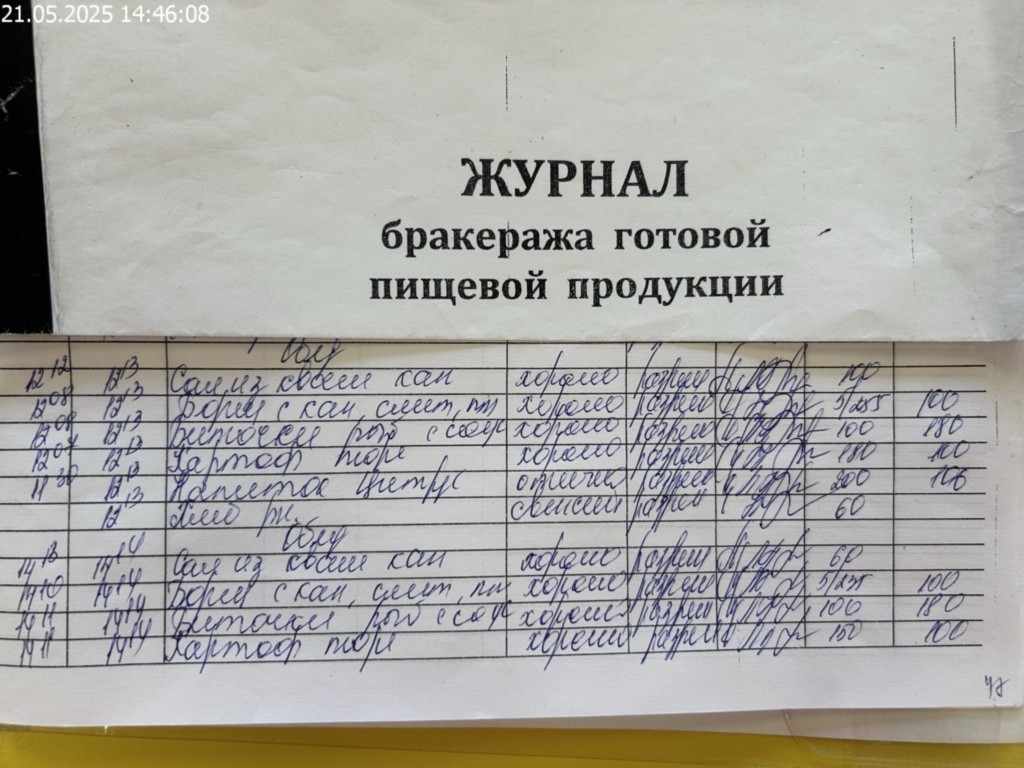 21.05.2025 14:46:08
ЖУРНАЛ
бракеража готовой
пищевой продукции
12 12 12 13 Сал из квашен кап хорошо разреш 100
12 08 12 13 Борщ с кап, смет, пт хорошо разреш 5/255 100
12 09 12 13 Биточки рыб с соус хорошо разреш 100 180
12 07 12 13 Картоф пюре хорошо разреш 180 100
11 30 12 13 Напиток Цитрус отлично разреш 200 106
12 13 Хлеб рж. свежий разреш 60
14 13 14 14 Сал из квашен кап хорошо разреш 60
14 10 14 14 Борщ с кап, смет, пт хорошо разреш 5/235 100
14 11 14 14 Биточки рыб с соус хорошо разреш 100 180
14 11 14 14 Картоф пюре хорошо разреш 150 100